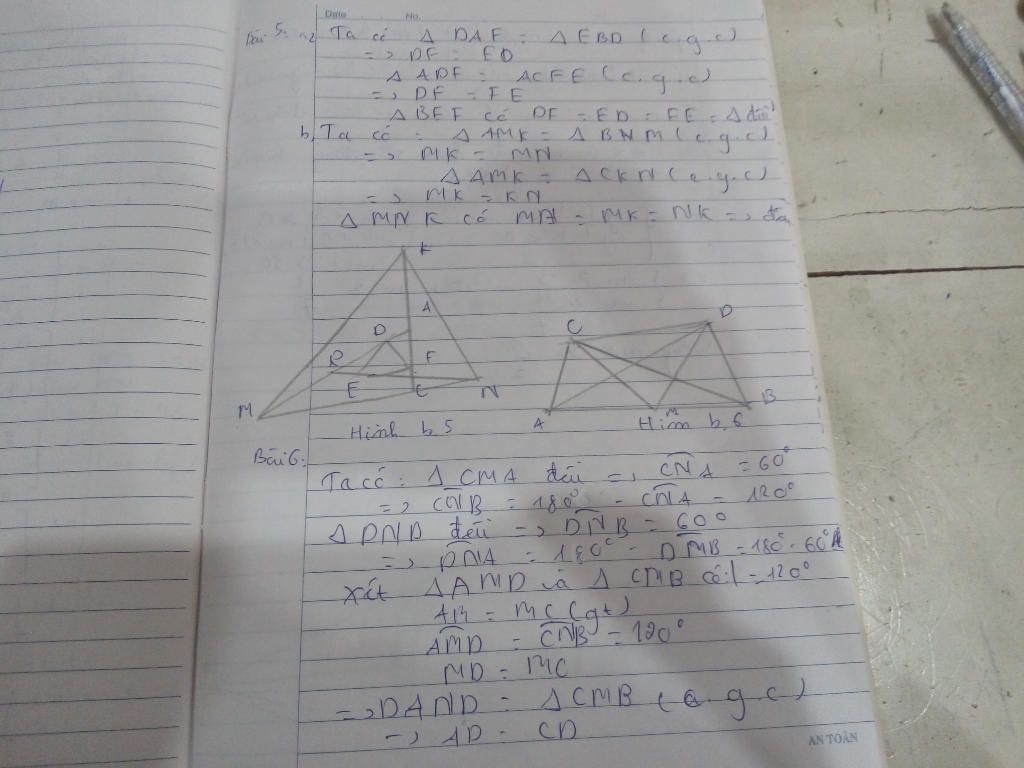 Date No.
Bài 5: a, Ta có Δ DAF = Δ EBD (c.g.c)
=> DF = ED
Δ ADF = ΔCFE (c.g.c)
=> DF = FE
Δ BEF có DF = ED = FE = Δ đều
b, Ta có: Δ AMK = Δ BNM (c.g.c)
=> MK = MN
Δ AMK = ΔCKN (c.g.c)
=> MK = KN
Δ MNK có MN = MK = NK => đều
K
A
D
C
D
B
F
E
C
N
M
A
M
B
Hình b,5
Hìm b,6
Bài 6:
Ta có: Δ CMA đều => CNA = 60°
=> CNB = 180° - CNA = 120°
Δ DND đều => DNB = 60°
=> DNA = 180° - DMB = 180° - 60°
Xét ΔAMD và Δ CMB có: = 120°
AM = MC (gt)
AMD = CNB = 120°
MD = MC
=> DAND = ΔCMB (c.g.c)
=> AD = CD
AN TOÀN